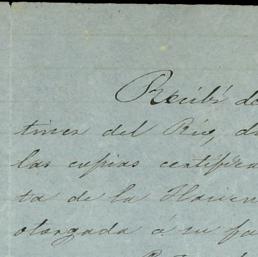 Recibí de
tines del Rio, d
las copias certifica
ta de la Hacien
otorgada á su fa